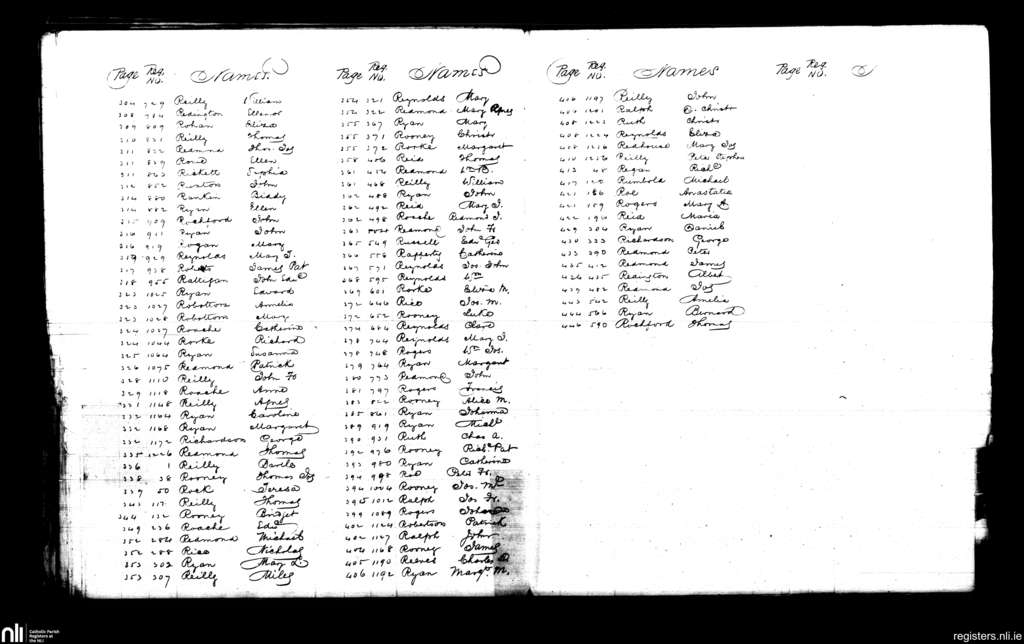 Page Reg. No. Names
304 729 Reilly William
308 784 Redington Ellenor
309 809 Rohan Eliza
310 821 Reilly Thomas
311 822 Redmond Thos. Jos
311 839 Ellen
311 843 Rickett Sophia
312 852 John
314 880 Rankin Biddy
314 882 Ryan Ellen
315 909 Rochford John
316 911 Ryan John
316 919 Rogan Mary
317 929 Reynolds May J.
317 938 James Pat
318 955 Ratigan John Edwd
323 1025 Ryan Edward
323 1027 Robottom Amelia
323 1028 Robottom Mary
324 1037 Roache Catherine
324 1044 Rorke Richard
325 1064 Ryan Susanna
326 1075 Redmond Patrick
328 1110 Reilly John Fs
329 1118 Roache Anne
331 1148 Reilly Agnes
332 1164 Ryan Caroline
332 1168 Ryan Margaret
332 1172 Richardson George
335 1226 Redmond Thomas
336 1 Reilly Bartle
338 38 Rooney Thomas Jos
339 50 Rock Teresa
343 117 Reilly Thomas
344 132 Rooney Bridget
349 236 Roache Edwd
352 284 Redmond Michael
352 288 Rice Nicholas
353 302 Ryan Mary L.
353 307 Reilly Miles
Page Reg. No. Names
354 321 Reynolds May
354 322 Redmond Mary Agnes
355 367 Ryan Mary
355 371 Rooney Christr
355 372 Rorke Margaret
358 406 Reid Thomas
361 454 Redmond Wm B.
361 468 Reilly William
362 488 Ryan John
362 492 Reid May J.
362 498 Roache Redmond J.
363 Redmond John Fs
365 549 Russell Edwd Geo
366 556 Rafferty Catherine
367 571 Reynolds Jos. John
368 595 Reynolds Wm
369 601 Rorke Elvira M.
372 646 Rice Jos. M.
372 652 Rooney Luke
374 684 Reynolds Clare
378 744 Reynolds May J.
378 748 Rogers Wm Jos.
379 764 Ryan Margaret
380 773 Redmond John
381 797 Rogers Francis
383 822 Rooney Alice M.
385 861 Ryan Johanna
389 919 Ryan Michl
390 931 Ruth Chas A.
392 976 Rooney Richd Pat
393 980 Ryan Catherine
394 998 Peter Fs.
394 1004 Rooney Jos. Md
395 1012 Ralph Jos Fs.
399 1089 Rogers Johanna
402 1124 Robertson Patrick
402 1127 Ralph John
404 1168 Rooney James
405 1190 Reeves Charles
406 1192 Ryan Margt. M.
Page Reg. No. Names
406 1197 Reilly John
406 1201 Ralph Christr
408 1223 Ruth Christr
408 1224 Reynolds Eliza
408 1236 Redhouse Mary Jos
410 1256 Reilly Peter Stephen
413 48 Regan Richd
417 125 Rumbold Michael
421 186 Roe Anastatia
421 189 Rogers Mary A
422 196 Reid Maria
429 304 Ryan Daniel
430 323 Richardson George
433 390 Redmond Peter
435 412 Redmond James
436 435 Redington Albert
439 482 Redmond Jos
443 542 Reilly Amelia
444 566 Ryan Bernard
446 590 Richford Thomas
Page Reg. No.
nli
Catholic Parish
Registers at
the NLI
registers.nli.ie